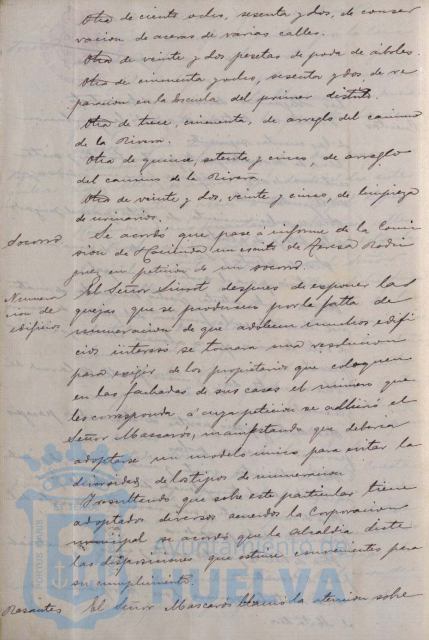 Otra de ciento ocho, sesenta y dos, de conser
vacion de aceras de varias calles.
Otra de veinte y dos pesetas de poda de árboles.
Otra de cincuenta y ocho, sesenta y dos, de re
paracion en la Escuela del primer distrito
Otra de trece, cincuenta, de arreglo del camino
de la Rivera.
Otra de quince, setenta y cinco, de arreglo
del camino de la Rivera.
Otra de veinte y dos, veinte y cinco, de limpieza
de urinarios.
Socorro Se acordó que pase á informe de la Comi
sion de Hacienda un escrito de Teresa Rodri
guez en peticion de un socorro.
Numera
cion de
edificios
El Señor despues de esponer las
quejas que se producen por la falta de
numeracion de que adolecen muchos edifi
cios interesó se tomara una resolucion
para exigir de los propietarios que coloquen
en las fachadas de sus casas el número que
les corresponda á cuya peticion se adhirió el
Señor Mascarós, manifestando que deberia
adoptarse un modelo único para evitar la
diversidad de los tipos de numeracion
Y resultando que sobre este particular tiene
adoptados diversos acuerdos la Corporacion
municipal se acordó que la Alcaldia dicte
las disposiciones que estime convenientes para
su cumplimiento.
Rasantes El Señor Mascarós llamó la atencion sobre
Ayuntamiento de
HUELVA
PORTUS MARIS